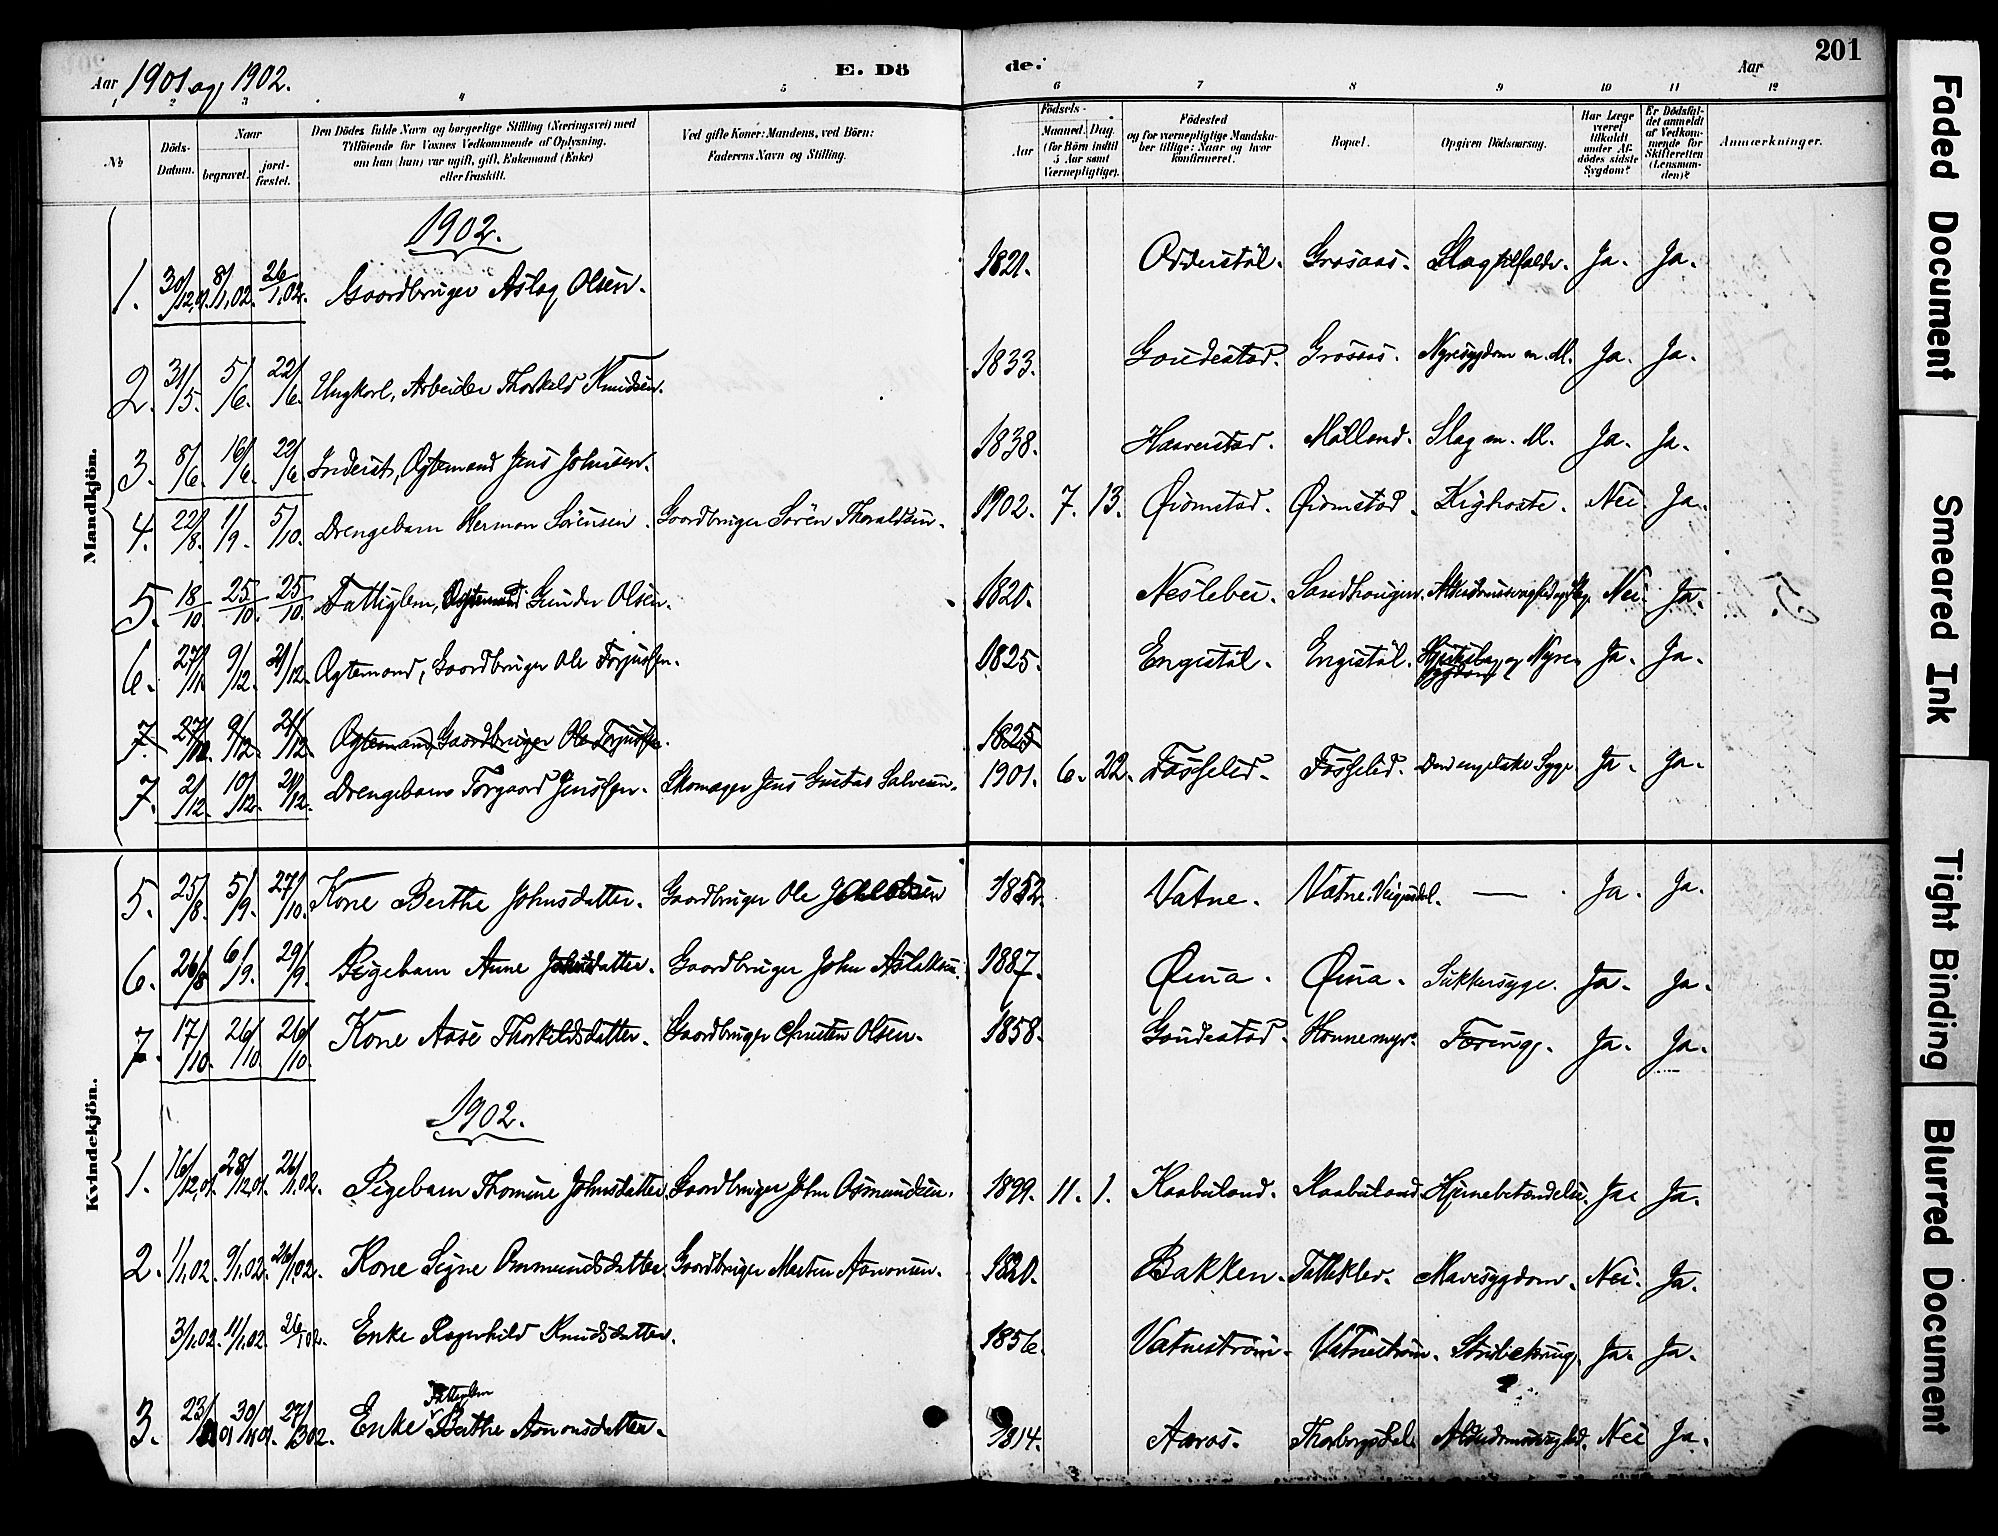 Aar 1901 og 1902. E. Dö de. Aar 201
1 2 3 4 5 6 7 8 9 10 11 12
№
Döds-Datum.
Naar
begravet.
jord-fæstet.
Den Dödes fulde Navn og borgerlige Stilling (Næringsvei) med
Tilföiende for Voxnes Vedkommende af Oplysning,
om han (hun) var ugift, gift, Enkemand (Enke)
eller fraskilt.
Ved gifte Koner: Mandens, ved Börn:
Faderens Navn og Stilling.
Födsels-
Aar
Maaned. Dag.
(for Börn indtil
5 Aar samt
Værnepligtige).
Födested
og for værnepligtige Mandska-
ber tillige: Naar og hvor
konfirmeret.
Bopæl.
Opgiven Dödsaarsag.
Har Læge
været
tilkaldt
under Af-
dödes sidste
Sygdom?
Er Dödsfal-
det anmeldt
af Vedkom-
mende for
Skifteretten
(Lensman-
den)?
Anmærkninger.
Mandkjön.
1902.
1. 30/12,01. 8/1,02. 26/1,02. Gaardbruger Aslag Olsen. 1821. Odderstöl. Grosaas. Slagtilfælde. Ja. Ja.
2. 31/5. 5/6. 22/6. Ungkarl, Arbeider Thorkeld Knudsen. 1833. Goudestad. Grosaas. Nyresygdom m. M. Ja. Ja.
3. 8/6. 16/6. 22/6. Inderst, Ægtemand Jens Johnsen. 1838. Haaverstad. Mölland. Slag m. M. Ja. Ja.
4. 22/8. 1/9. 5/10. Drengebarn Herman Sörensen. Gaardbruger Sören Thoraldsen. 1902. 7. 13. Öiömstad. Öiömstad. Kighoste. Nei. Ja.
5. 18/10 25/10 25/10 Fattiglem, Ægtemand Gunder Olsen. 1820. Neslebei. Sandhougen. Nei. Ja.
6. 27/11. 9/12. 21/12. Ægtemand, Gaardbruger Ole Torjussen. 1825. Engistöl. Engistöl. og Nyresygdom Ja. Ja.
7. 27/11. 9/12. 21/12 Ægtemand, Gaardbruger Ole Torjussen. 1825
7. 2/12. 10/12. 21/12. Drengebarn Torgaard Jenssen. Skomager Jens Gustav Salvesen. 1901. 6. 22. Fösselid. Fösselid. Den engelske Syge Ja. Ja.
Kvindekjön.
5. 25/8. 5/9. 27/10. Kone Berthe Johnsdatter. Gaardbruger Ole 1852. Vatne. Vatne. — . Ja. Ja.
6. 26/8 6/9. 29/9. Pigebarn Anne Johnsdatter. Gaardbruger John Aslaksen. 1887. Öina. Öina. Sukkersyge. Ja. Ja.
7. 17/10. 26/10. 26/10. Kone Aase Thorkildsdatter. Gaardbruger Christen Olsen. 1858. Goudestad. Honnemyr. Tæring. Ja. Ja.
1902.
1. 16/12,01. 28/12,01. 26/1,02. Pigebarn Thomine Johnsdatter. Gaardbruger John Osmundsen. 1899. 11. 1. Kaabuland. Kaabuland. Hjernebetændelse. Ja. Ja.
2. 1/1,02. 9/1,02. 26/1,02. Kone Signe Aanmundsdatter. Gaardbruger Martin Aanonsen. 1820. Bakken. Tatteklev. Mavesygdom. Nei. Ja.
3/1,02. 11/1,02. 26/1,02. Enke Ragnhild Knudsdatter. 1856. Vatneström. Vatneström. Ja. Ja.
3. 23/ 01 30/ 01. 27/302. Enke Fattiglem Berthe Aanonsdatter. 1814. Aaros. Thorborgsdal. Alderdomssvaghed. Nei Ja.
Faded Document
Smeared Ink
Tight Binding
Blurred Document